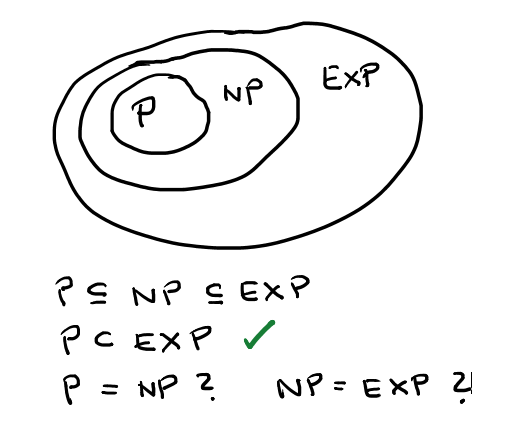 P NP EXP
P ⊆ NP ⊆ EXP
P ⊂ EXP ✓
P = NP ? NP = EXP ?